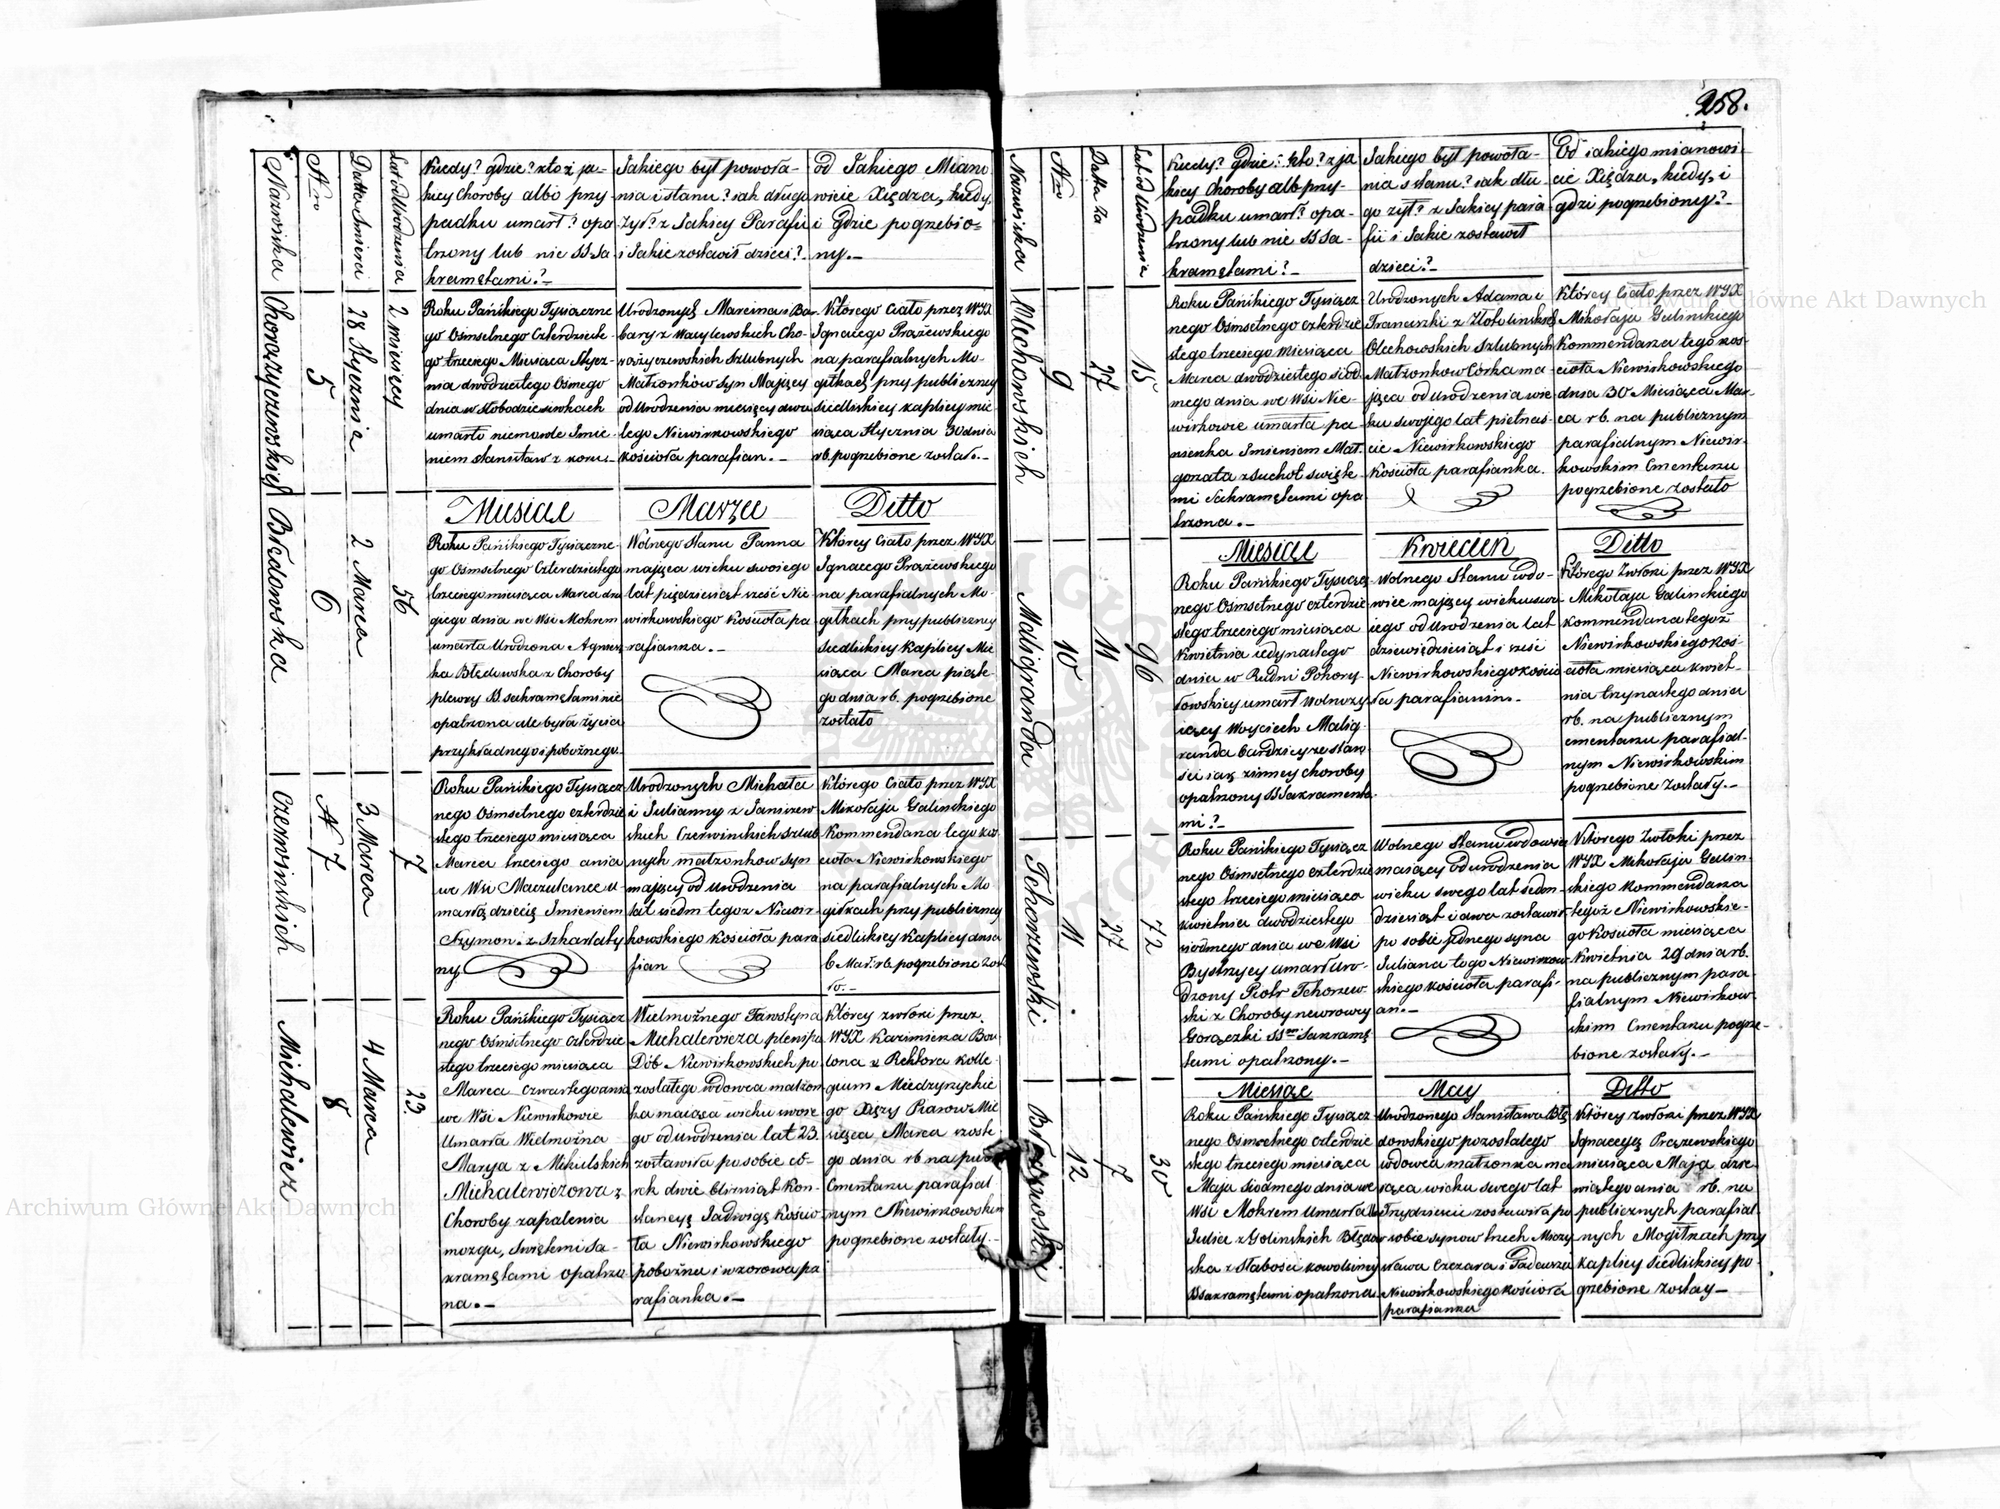 258.
Nazwiska
Nro
Datta Śmierci
Lat od Urodzenia
Kiedy? gdzie? kto z ja-
kiey Choroby albo przy
padku umarł? opa
trzony lub nie SS Sa
kramętami?
Jakiego był powoła-
nia i stanu? iak długo
żył? z Jakiey Parafii
i Jakie zostawił dzieci?
od Jakiego Miano
wicie Xiędza, kiedy,
i gdzie pogrzebio=
ny.
Chorążyczewskich
5
28 Stycznia
2 miesięcy
Roku Pańskiego Tysiączne
go Ośmsetnego Czterdzieste-
go trzeciego Miesiąca Stycz-
nia dwódziestego Osmego
dnia w
umarło niemowle Imie-
niem Stanisław z
Urodzonych Marcina i Ba
bary z Cho-
rążyczewskich Szlubnych
Małżonków syn Maiący
od Urodzenia miesięcy dwa
tego Niewirkowskiego
kościoła parafian.
Którego Ciało przez WJX
Ignacego Prążewskiego
na parafialnych Mo-
giłkach przy publiczney
Siedliskiey kaplicy mie
siąca Stycznia 30 dnia
rb. pogrzebione został.
Miesiąc
Marzec
Ditto
Błędowska
6
2 Marca
56
Roku Pańskiego Tysiączne-
go Ośmsetnego Czterdziestego
trzeciego miesiąca Marca dru
giego dnia we Wsi Mokrem
umarła Urodzona Agniesz
ka Błędowska z Choroby
pleury SS. sakramętami nie
opatrzona ale była życia
przykładnego i pobożnego.
Wolnego stanu Panna
maiąca wieku swoiego
lat pięćdziesiąt sześć Nie
wirkowskiego Kościoła pa
rafianka.
Którey Ciało przez WJX
Ignacego Prążewskiego
na parafialnych Mo-
giłkach przy publiczney
Siedliskiey Kaplicy Mie
siąca Marca piąte-
go dnia rb. pogrzebione
zostało
Czerwińskich
N 7
3 Marca
7
Roku Pańskiego Tysiącz
nego Ośmsetnego czterdzie
stego trzeciego miesiąca
Marca trzeciego dnia
we Wsi Mazulance u
marło dziecię Imieniem
Szymon z Szkarlaty
ny.
Urodzonych Michała
i Julianny z Janiszew
skich Czerwinskich Szlub
nych małżonkow syn
maiący od Urodzenia
lat siedm tegoż Niewir-
kowskiego Kościoła para
fian
Którego Ciało przez WJX
Mikołaja Galinskiego
Kommendana tego ko
ścioła Niewirkowskiego
na parafialnych Mo
giłkach przy publiczney
siedliskiey Kaplicy dnia
6 Mar: rb. pogrzebione zost
ło.
Michalewicz
8
4 Marca
23.
Roku Pańskiego Tysiącz
nego Ośmsetnego Czterdzie
stego trzeciego miesiąca
Marca czwartego dnia
we Wsi Niewirkowie
Umarła Wielmożna
Marya z Mikulskich
Michalewiczowa z
Choroby zapalenia
mozgu, świętemi Sa-
kramętami opatrzo
na.
Wielmożnego Fawstyna
Michalewicza plenipo
Dób Niewirkowskich po
zostałego wdowca małżon
ka maiąca wieku swoie
go od urodzenia lat 23
zostawiła po sobie có-
rek dwie blizniąt Kon-
stancyę Jadwigę Kościo
ła Niewirkowskiego
pobożna i wzorowa pa
rafianka.
Którey zwłoki przez
WJX Kazimierza Bou
lona z Rektora kolle-
gium Miedzyryckie
go Xięzy Piarow Mie
siąca Marca szoste
go dnia rb na publ
Cmentarzu parafial
nym Niewirkowskim
pogrzebione zostały.
Nazwiska
Nro
Datta za
Lat od Urodzenia
Kiedy? gdzie? kto? z ja
kiey Choroby alb przy-
padku umarł? opa-
trzony lub nie SS Sa-
kramętami?
Jakiego był powoła-
nia i stanu? iak dłu
go żył? z Jakiey para
fii i Jakie zostawił
dzieci?
Od iakiego mianowi
cie Xiędza, kiedy, i
gdzi pogrzebiony?
Olechowskich
9
27
15
Roku Pańskiego Tysiącz
nego Ośmsetnego czterdzie
stego trzeciego miesiąca
Marca dwódziestego siód
mego dnia we Wsi Nie-
wirkowie umarła pa
nienka Imieniem Mał-
gorzata z suchot święte
mi Sakramętami opa
trzona.
Urodzonych Adama i
Franciszki z
Olechowskich Szlubnych
Małżonkow Córka ma
jąca od urodzenia wie
ku swojego lat pietnas
cie Niewirkowskiego
Kościoła parafianka.
Którey Ciało przez WJX
Mikołaja Galinskiego
Kommendana tego kos-
cioła Niewirkowskiego
dnia 30 Miesiąca Mar-
ca rb. na publicznym
parafialnym Niewir-
kowskim Cmentarzu
pogrzebione zostało
Miesiąc
Kwiecień
Ditto
Maligrandow
10
11
96
Roku Pańskiego Tysiącz
nego Ośmsetnego czterdzie
stego trzeciego miesiąca
Kwietnia iedynastego
dnia w Rudni Pohory-
łowskiey umarł wolnoży
iący Woyciech Malig-
randa bardziey ze staro
ści iak zinney choroby
opatrzony SS Sakramenta
mi?
Wolnego Stanu wdo-
wiec maiący wieku swo
iego od Urodzenia lat
dziewięćdziesiąt i sześć
Niewirkowskiego kościo
ła parafianin.
Którego Zwłoki przez WJX
Mikołaja Galinskiego
Kommendana tegoż
Niewirkowskiego Koś-
cioła miesiąca kwiet-
nia trzynastego dnia
rb. na publicznym
cmentarzu parafial-
nym Niewirkowskim
pogrzebione zostały.
Tchorzewski
11
27
72
Roku Pańskiego Tysiącz
nego Ośmsetnego czterdzie
stego trzeciego miesiąca
kwietnia dwódziestego
siodmego dnia we Wsi
Bystrzycy umarł Uro-
dzony Piotr Tchorzew-
ski z Choroby nerwowey
Gorączki SSmi Sakramę
tami opatrzony.
Wolnego Stanu wdowiec
maiący od urodzenia
wieku swego lat siedm-
dziesiąt i dwa zostawił
po sobie jednego syna
Juliana tego Niewirkow-
skiego kościoła parafi-
an.
Którego Zwłoki przez
WJX Mikołaja Galin-
skiego Kommendana
tegoż Niewirkowskie-
go Kościoła miesiąca
Kwietnia 29 dnia rb.
na publicznym para
fialnym Niewirkow-
skim Cmentarzu pogrze-
bione zostały.
Miesiąc
May
Ditto
Błędowski
12
7
30
Roku Pańskiego Tysiącz
nego Ośmsetnego czterdzie
stego trzeciego miesiąca
Maja siodmego dnia we
Wsi Mokrem Umarła Ur
Julia z Golinskich Błędow
ska z słabości
SSakramętami opatrzona
Urodzonego Stanisława Błę
dowskiego pozostałego
wdowca małżonka ma
iąca wieku swego lat
Trzydzieści zostawiła po
sobie synow trzech Mieczy
sława Czezara i Tadeusza
Niewirkowskiego kościoła
parafianka
Którey zwłoki przez WJX
Ignacego Prążewskiego
miesiąca Maja dzie-
wiątego dnia rb. na
publicznych parafial
nych Mogiłkach przy
Kaplicy Siedliskiey po-
grzebione zostały
Archiwum Główne Akt Dawnych
Archiwum Główne Akt Dawnych